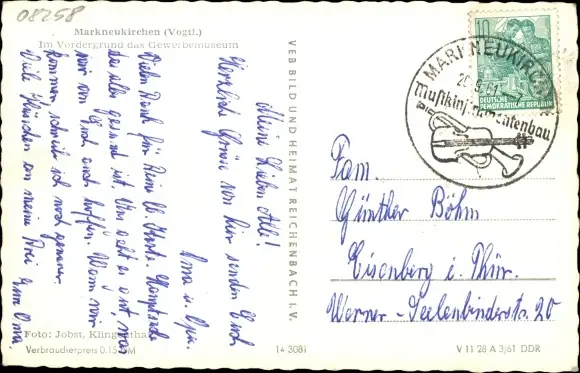 08258
Markneukirchen (Vogtl.)
Im Vordergrund das Gewerbemuseum
Meine lieben All!
Herzliche Grüsse von hier senden Euch
Oma u. Opa.
Vielen Dank für Deine lb. Karte. Hauptsache
das alles gesund ist. Uns geht es gut, was
wir von Euch auch hoffen. Wann wir
kommen, schreib ich noch genauer.
Viele Küsschen an meine Drei Eure Oma.
Foto: Jobst, Klingenthal
Verbraucherpreis 0.15 DM
VEB BILD UND HEIMAT REICHENBACH I. V.
14 3081
V 11 28 A 3/61 DDR
10
DEUTSCHE
DEMOKRATISCHE REPUBLIK
MARKNEUKIRCHEN
Musikinstrumentenbau
Fam.
Günther Böhm
Eisenberg i. Thür.
Werner-Seelenbinderstr. 20